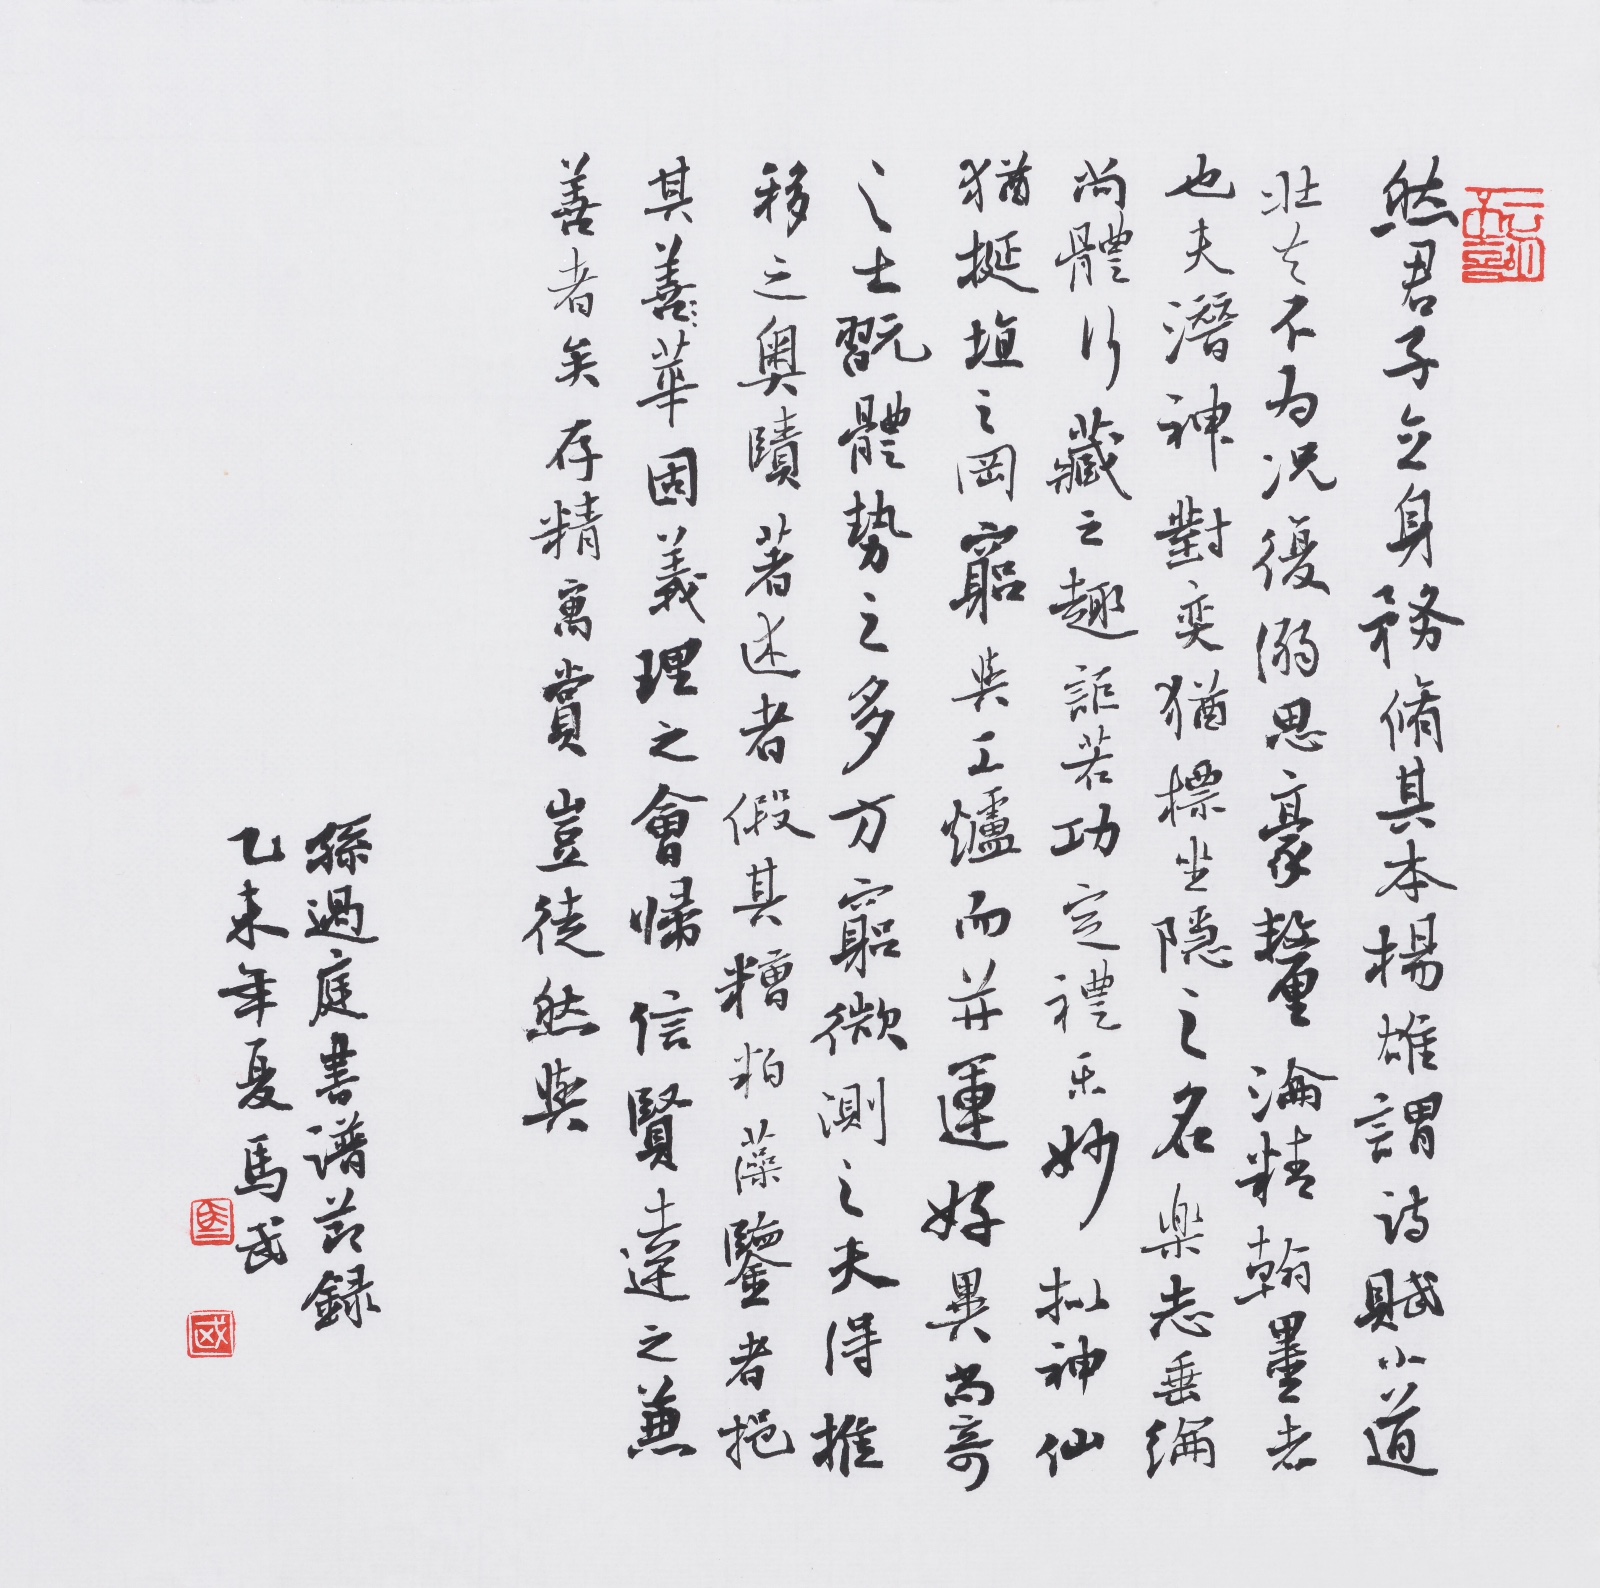 然君子立身務脩其本楊雄謂詩賦小道
壮夫不为况復溺思豪釐淪精翰墨者
也夫潛神對奕猶標坐隱之名楽志垂綸
尚體行藏之趣詎若功定禮乐妙拟神仙
猶挻埴之罔窮與工爐而并運好異尚奇
之士翫體勢之多方窮微測之夫得推
移之奥賾著述者假其糟粕藻鑒者挹
其善華固義理之會歸信賢達之兼
善者矣存精寓賞豈徒然與
孫過庭書譜節録
乙未年夏馬武